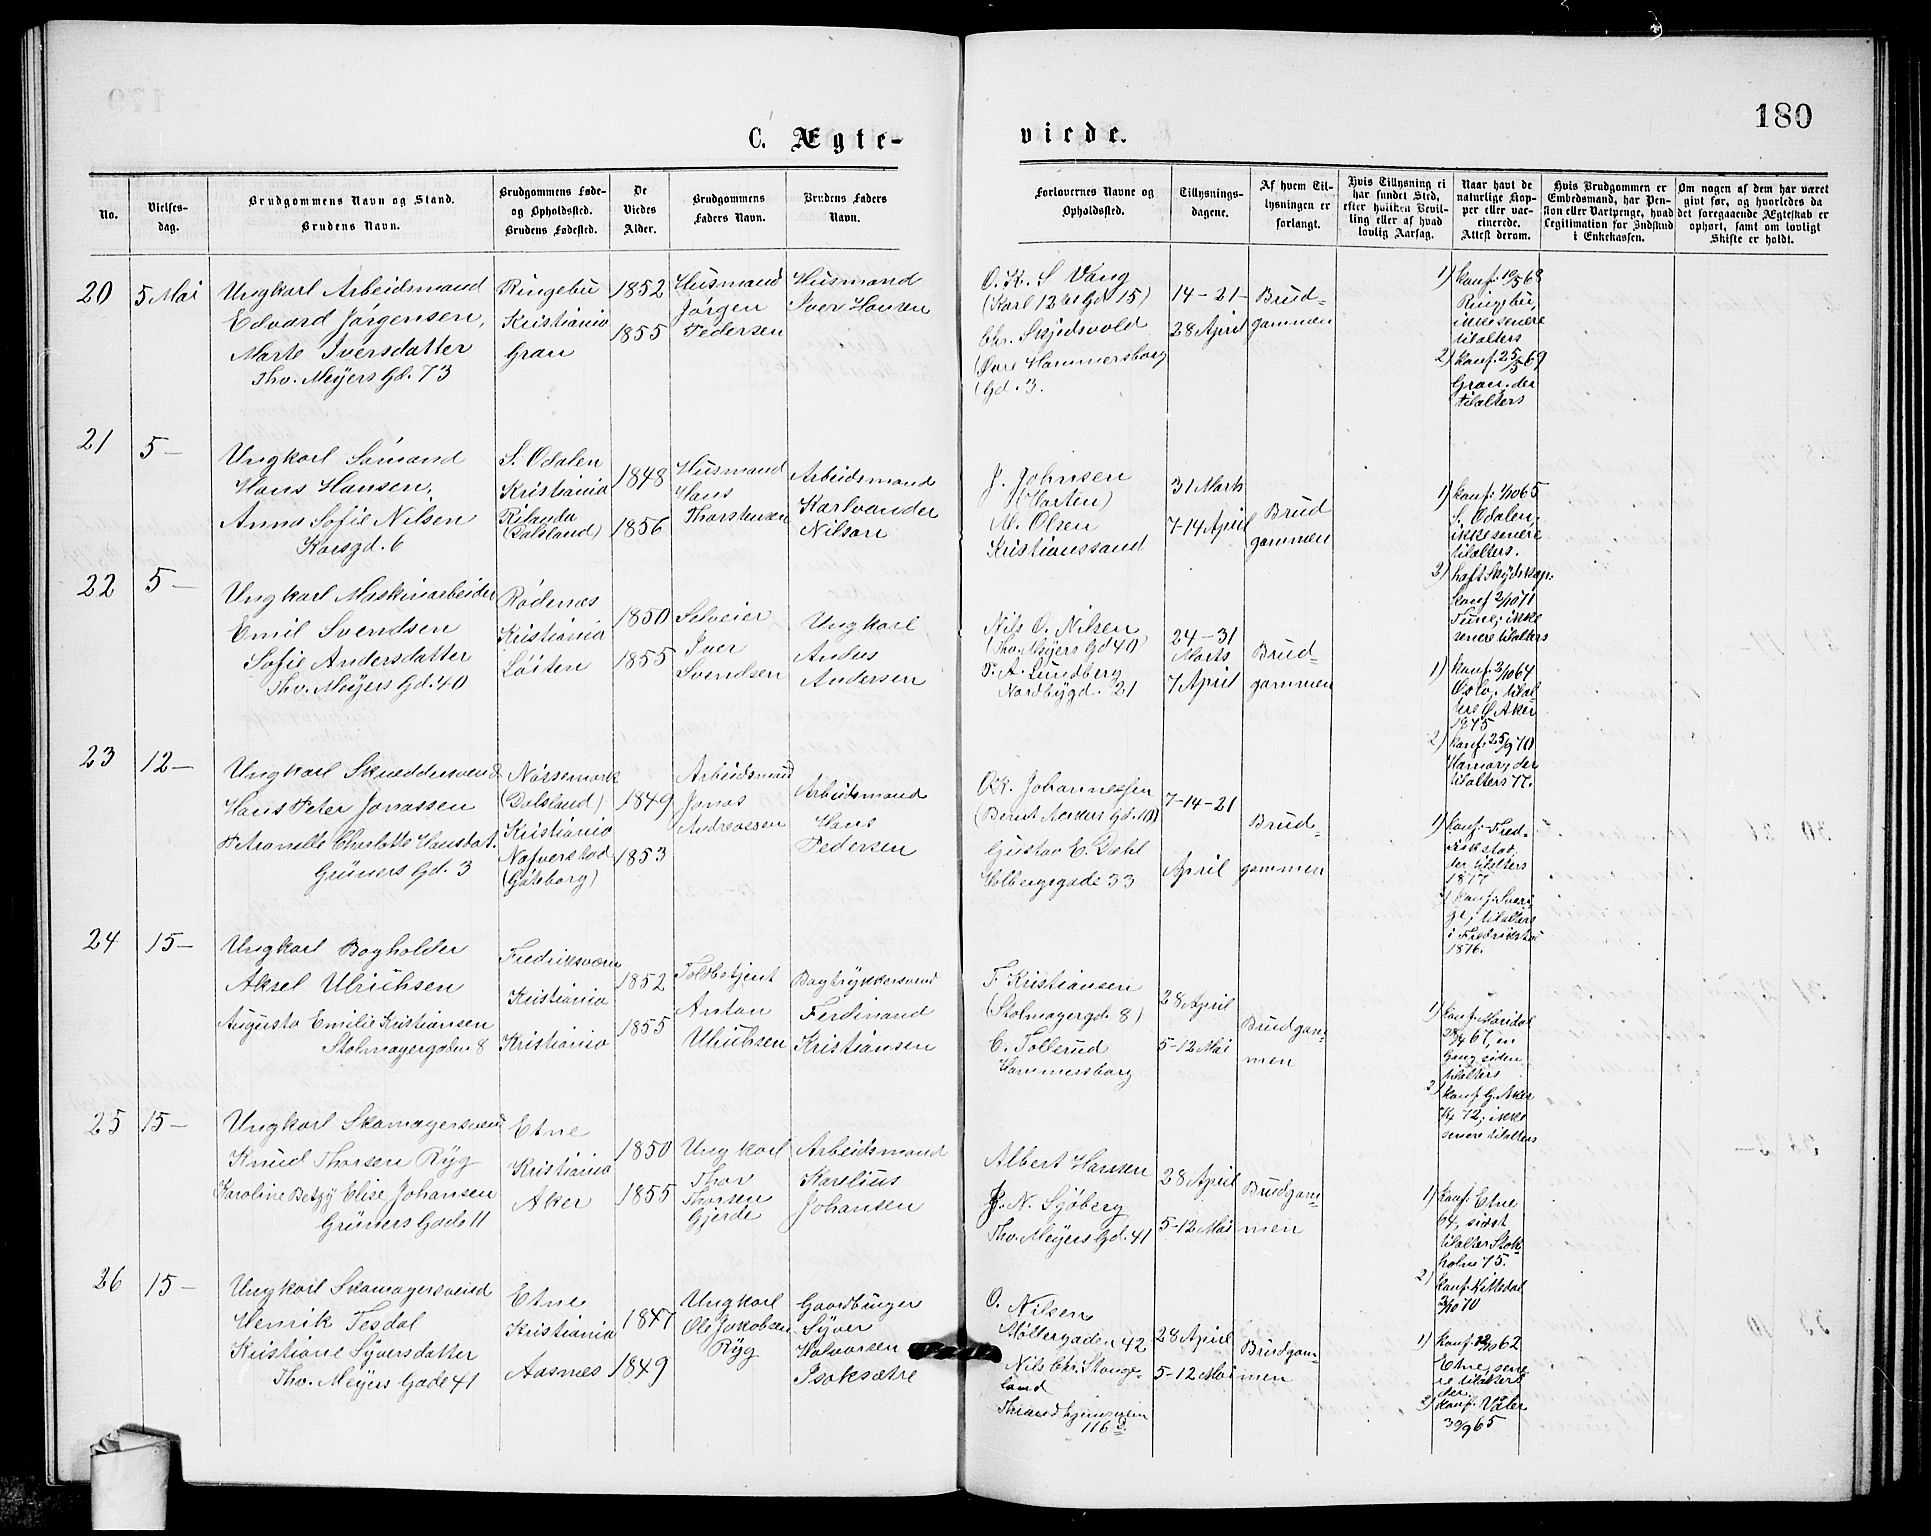 180
C. Ægte-
viede.
No.
Vielses-
dag.
Brudgommens Navn og Stand.
Brudens Navn.
Brudgommens Føde-
og Opholdssted.
Brudens Fødested.
De
Viedes
Alder.
Brudgommens
Faders Navn.
Brudens Faders
Navn.
Forlovernes Navne og
Opholdssted.
Tillysnings-
dagene.
Af hvem Til-
lysningen er
forlangt.
Hvis Tillysning ei
har fundet Sted,
efter hvilken Bevil-
ling eller af hvad
lovlig Aarsag.
Naar havt de
naturlige Kop-
per eller vac-
cinerede.
Attest derom.
Hvis Brudgommen er
Embedsmand, har Pen-
sion eller Vartpenge, hvad
Legitimation for Indskud
i Enkekassen.
Om nogen af dem har været
gift før, og hvorledes da
det foregaaende Ægteskab er
ophørt, samt om lovligt
Skifte er holdt.
20
5 Mai
Ungkarl Arbeidsmand
Edvard Jørgensen,
Marte Iversdatter
Thv. Meÿers Gd. 73
Ringebu
Kristiania
Gran
1852
1855
Husmand
Jørgen
Pedersen
Husmand
Iver Hansen
O. K. S. Vang
(Karl 12tes Gd 15)
Chr. Skjedsvold
(Øvre Hammersborg
Gd. 3.
14-21-
28 April
Brud-
gommen
1) konf. 10/5 68
Ringebu,
ikke senere
tilalters
2) konf. 25/5 69
Gran, der
tilalters
21
5 –
Ungkarl Sømand
Hans Hansen,
Anna Sofie Nilsen
Korsgd. 6
S. Odalen
Kristiania
(Dalsland)
1848
1856
Husmand
Hans
Thorstensen
Arbeidsmand
Karlvander
Nilsson
J. Johnsen
(Horten)
M. Olsen
Kristianssand
31 Marts
7-14 April
Brud
gommen
1) konf. 1/10 65
S. Odalen,
ikke senere
tilalters.
2)
konf 2/10 71
Tune, ikke
senere tilalters
22
5 –
Ungkarl Maskinarbeider
Emil Svendsen
Sofie Andersdatter
Thv. Meÿers Gd. 40
Rødenæs
Kristiania
Løiten
1850
1855
Selveier
Iver
Svendsen
Ungkarl
Anders
Andersen
Nils O. Nilsen
(Thv. Meÿers Gd 40)
F. A. Lundberg
Nordbÿgd. 21
24-31
Marts
7 April
Brud-
gommen
1) konf. 2/10 64
Oslo, tilal
ters Ø Aker
1875
2) konf. 25/9 70
Hamar, der
tilalters 77.
23
12 –
Ungkarl Skræddersvend
Hans Peter Jonassen
Petronelle Charlotte Hansdat.
Grüners Gd. 3
Nøssemark
(Dalsland)
Kristiania
Nafverstad
(Gøteborg)
1849
1853
Arbeidsmand
Jonas
Andreasen
Arbeidsmand
Hans
Pedersen
Osk. Johannessen
(Bernt Ankers Gd. 10)
Gustav E. Dahl
Holbergsgade 33
7-14-21
April
Brud-
gommen
1) konf. Fred-
rikstad,
der tilalters
1877
2) konf. Sveri-
ge, tilalters
i Fredrikstad
1876.
24
15 –
Ungkarl Bogholder
Aksel Ulrichsen
Augusta Emilie Kristiansen
Stolmagergaden 8
Fredriksværn
Kristiania
Kristiania
1852
1855
Toldbetjent
Anton
Ulrichsen
Bogtrykkersvend
Ferdinand
Kristiansen
F Kristiansen
(Stolmagergd. 8)
C. Tollerud
Hammersborg
28 April
5-12 Mai
Brudgom-
men
1) konf. Maridal
67, en
Gang siden
tilalters
2) konf G. Aker
72, ikke
senere tilalters
25
15 –
Ungkarl Skomagersvend
Knud Thorsen Rÿg
Karoline Betzÿ Elise Johansen
Grüners Gade 11
Etne
Kristiania
Aker
1850
1855
Ungkarl
Thor
Thorsen
Gjerde
Arbeidsmand
Karelius
Johansen
Albert Hansen
J. N. Sjøberg
Thv. Meÿers Gd. 41
28 April
5-12 Mai
Brudgom-
men
1) konf. Etne
64, sidst
tilalters Stok-
holm 75.
2) konf. Kittedal
2/10 70
26
15 –
Ungkarl Skomagersvend
Henrik Tesdal
Kristiane Sÿversdatter
Thv. Meÿers Gade 41
Etne
Kristiania
Aasnes
1847
1849
Ungkarl
Ole Jakobsen
Rÿg
Gaardbruger
Sÿver
Halvorsen
O. Nilsen
Møllergaden 42
Nils Chr. Stange-
land
Throndhjemsveien
116
28 April
5-12 Mai
Brudgom-
men
1) konf. 62
Etne, sene
re tilalters
der.
2) konf. Våler
30/9 65